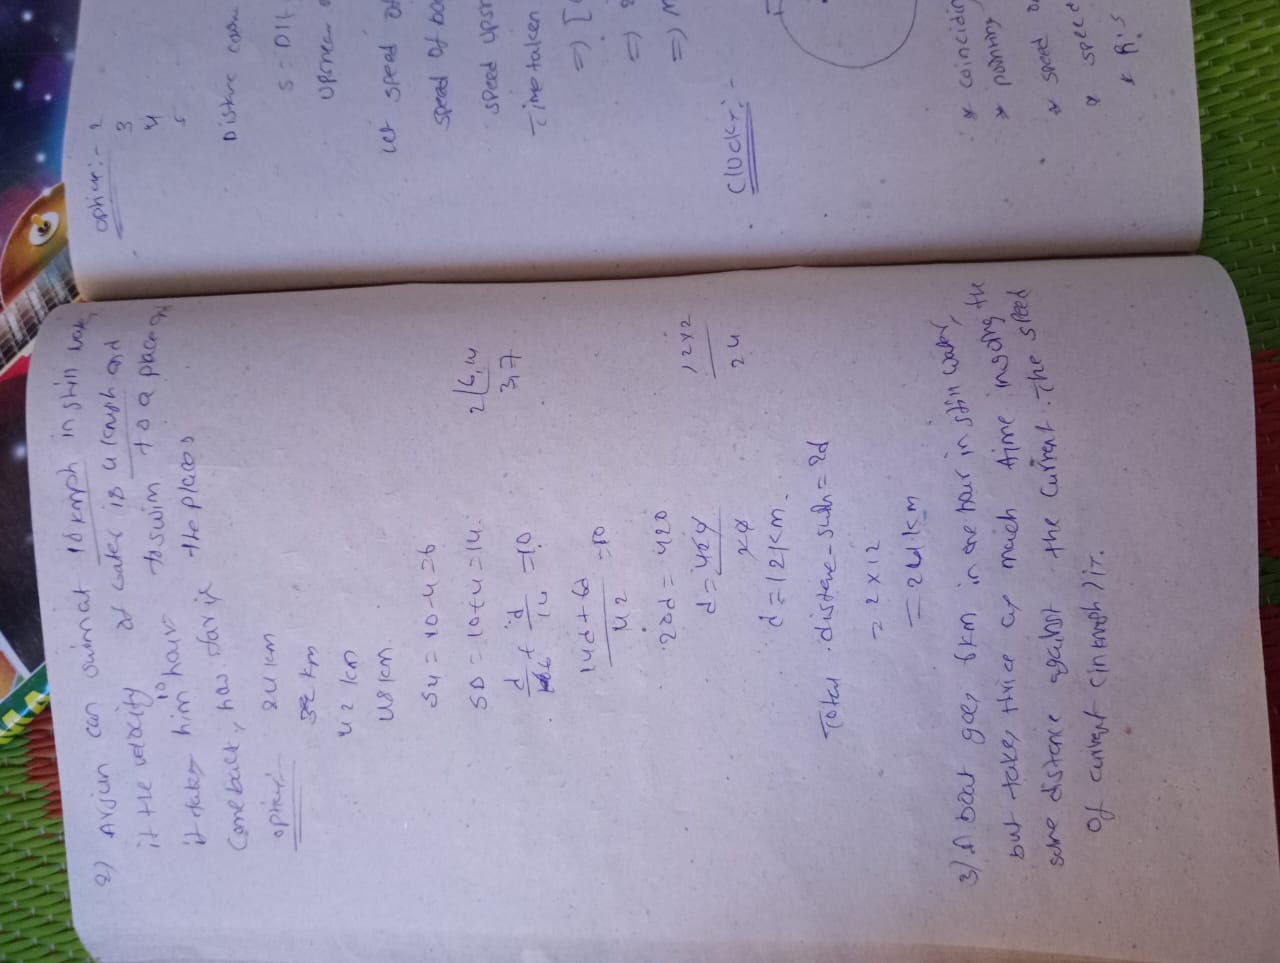 2) Arjun can swim at 10 kmph in still water,
if the velocity of water is 4 kmph and
it takes him 10 hour to swim to a place and
Comeback, how far is the places
option:- 24 km
32 km
42 km
48 km
SU = 10-4 = 6
SD = 10+4 = 14
2 6,14
3,7
d/6 + d/14 = 10
14d+6d/42 = 10
20d = 420
d = 420/20
12x2
24
d = 12 km.
Total distance = 2d
= 2 x 12
= 24 km
3) A boat goes 6km in one hour in still water,
but takes thrice as much time in going the
same distance against the current. The speed
of current (in kmph) is.
option:- 2
3
4
5
Distance
S = D/t
let speed of
speed of
speed
Time taken
=> [
=>
=>
Clocks:-
* coinciding
* pointing
* speed
* speed
*